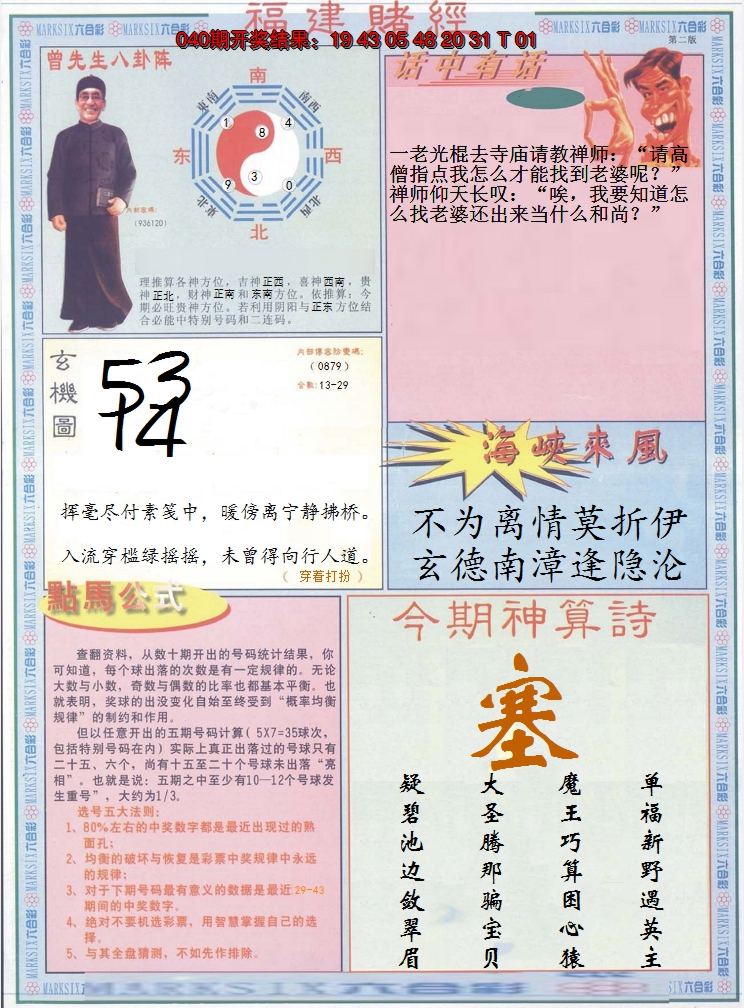 福建賭經
040期开奖结果：19 43 05 48 20 31 T 01
第二版
MARKSIX六合彩
曾先生八卦阵
南
东南
南西
1
8
4
东
西
9
3
0
东北
北西
北
内部密碼:
(936120)
理推算各神方位，吉神正西，喜神西南，贵
神正北，财神正南和东南方位。依推算：今
期必旺贵神方位。若利用阴阳与正东方位结
合必能中特别号码和二连码。
话中有话
一老光棍去寺庙请教禅师：“请高
僧指点我怎么才能找到老婆呢？”
禅师仰天长叹：“唉，我要知道怎
么找老婆还出来当什么和尚？”
玄機圖
53
14
(0879)
合数:13-29
挥毫尽付素笺中，暖傍离宁静拂桥。
入流穿槛绿摇摇，未曾得向行人道。
（穿着打扮）
海峽來風
不为离情莫折伊
玄德南漳逢隐沦
點馬公式
查翻资料，从数十期开出的号码统计结果，你
可知道，每个球出落的次数是有一定规律的。无论
大数与小数，奇数与偶数的比率也都基本平衡。也
就表明，奖球的出没变化自始至终受到“概率均衡
规律”的制约和作用。
但以任意开出的五期号码计算（5X7=35球次，
包括特别号码在内）实际上真正出落过的号球只有
二十五、六个，尚有十五至二十个号球未出落“亮
相”。也就是说：五期之中至少有10—12个号球发
生重号”，大约为1/3。
选号五大法则：
1、80%左右的中奖数字都是最近出现过的熟
面孔；
2、均衡的破坏与恢复是彩票中奖规律中永远
的规律；
3、对于下期号码最有意义的数据是最近29-43
期间的中奖数字。
4、绝对不要机选彩票，用智慧掌握自己的选
择。
5、与其全盘猜测，不如先作排除。
今期神算詩
塞
单福新野遇英主
魔王巧算困心猿
大圣腾那骗宝贝
疑碧池边敛翠眉